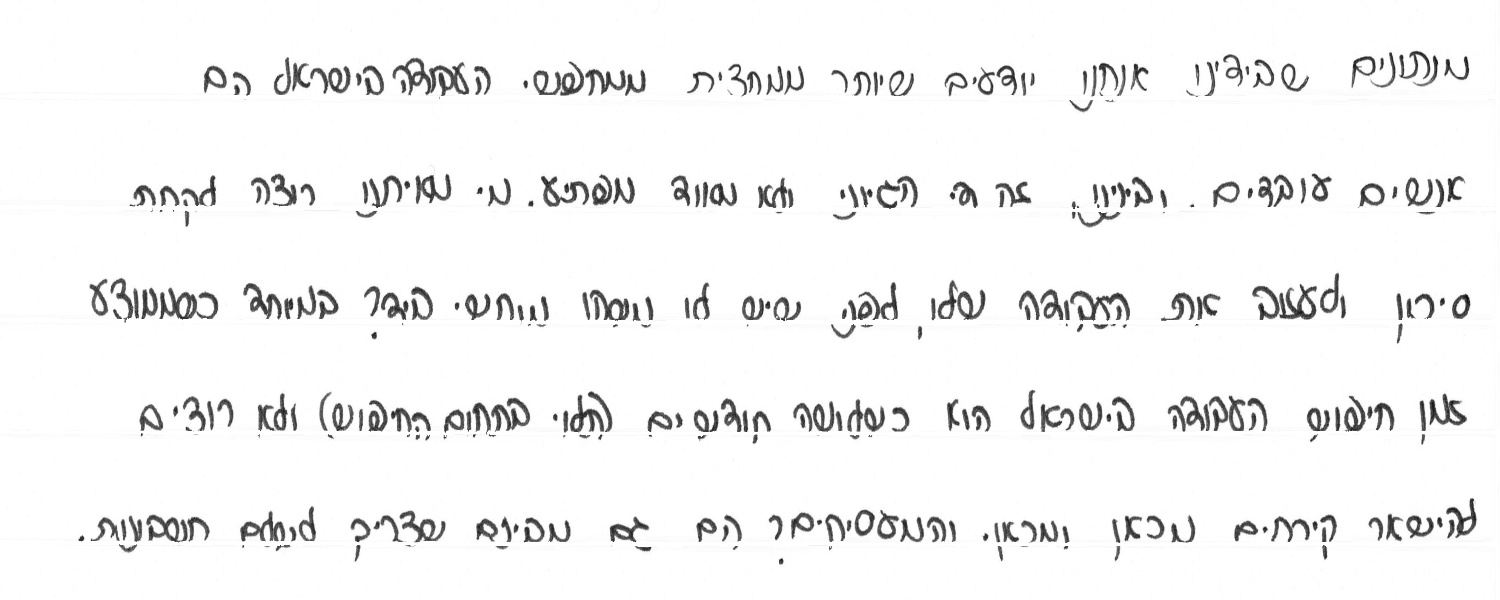 מנתונים שבידינו אנחנו יודעים שיותר ממחצית ממחפשי העבודה בישראל הם
אנשים עובדים. ובינינו, זה די הגיוני ולא מאוד מפתיע. מי מאיתנו רוצה לקחת
סיכון ולעזוב את העבודה שלו לפני שיש לו משהו מיוחד ביד? במיוחד כשממוצע
זמן חיפוש העבודה בישראל הוא כשלושה חודשים (תלוי בתחום החיפוש) ולא רוצים
להישאר קירחים מכאן ומכאן. והמעסיקים? הם גם מבינים שצריך לשלם משכורות.